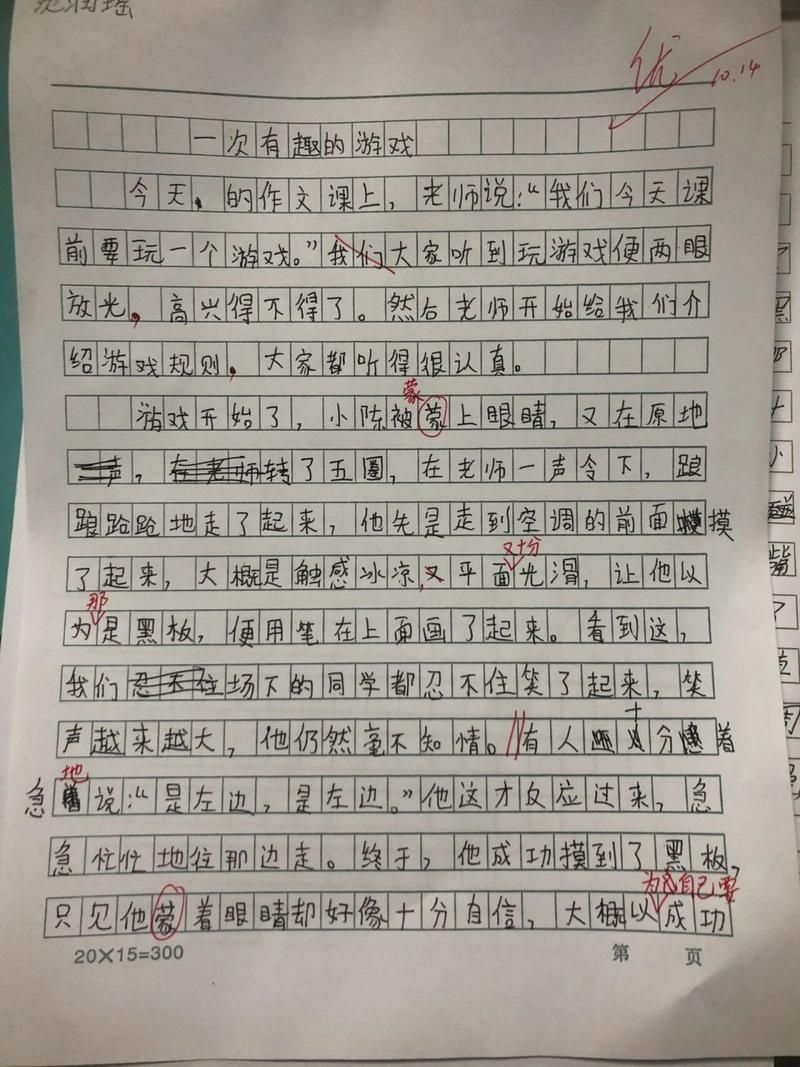 优
10.14
一次有趣的游戏
今天,的作文课上,老师说:“我们今天课
前要玩一个游戏。”我们大家听到玩游戏便两眼
放光,高兴得不得了。然后老师开始给我们介
绍游戏规则,大家都听得很认真。
蒙
游戏开始了,小陈被蒙上眼睛,又在原地
,转了五圈,在老师一声令下,踉
踉跄跄地走了起来,他先是走到空调的前面摸
又十分
了起来,大概是触感冰凉,又平面光滑,让他以
那
为是黑板,便用笔在上面画了起来。看到这,
我们在场下的同学都忍不住笑了起来,笑
声越来越大,他仍然毫不知情。有人十分着
地
急说:“是左边,是左边。”他这才反应过来,急
急忙忙地往那边走。终于,他成功摸到了黑板,
为自己要
只见他蒙着眼睛却好像十分自信,大概以成功
20×15=300
第 页